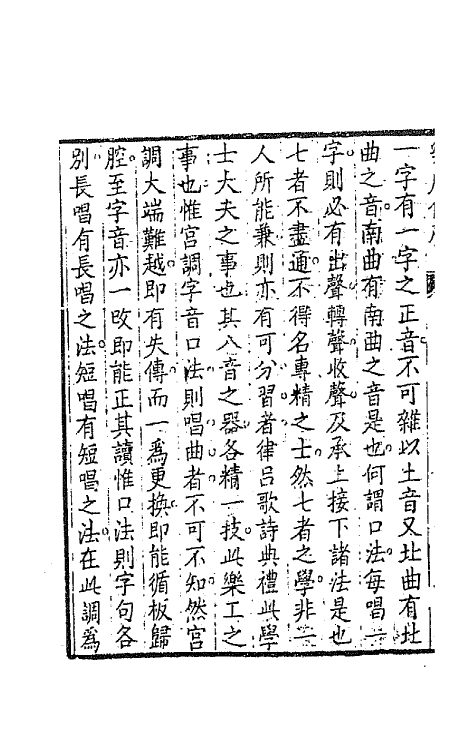 一字有一字之正音不可雜以土音又北曲有北
曲之音南曲有南曲之音是也何謂口法每唱一
字則必有出聲轉聲收聲及承上接下諸法是也
七者不盡通不得名專精之士然七者之學非一
人所能兼則亦有可分習者律呂歌詩典禮此學
士大夫之事也其八音之器各精一技此樂工之
事也惟宮調字音口法則唱曲者不可不知然宮
調大端難越即有失傳而一爲更換即能循板歸
腔至字音亦一改即能正其讀惟口法則字句各
別長唱有長唱之法短唱有短唱之法在此調爲